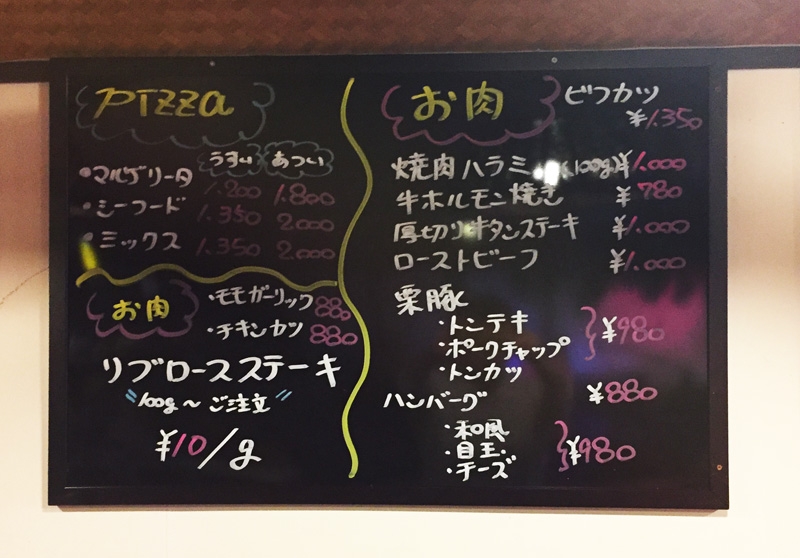 PIZZA
うすい あつい
・マルゲリータ 1.200 1.800
・シーフード 1.350 2.000
・ミックス 1.350 2.000
お肉
・モモガーリック 880
・チキンカツ 880
リブロースステーキ
"100g〜ご注文"
¥10/g
お肉
ビフカツ
¥1.350
焼肉ハラミ (100g) ¥1.000
牛ホルモン焼き ¥780
厚切り牛タンステーキ ¥1.000
ローストビーフ ¥1.000
栗豚
・トンテキ
・ポークチャップ
・トンカツ
}¥980
ハンバーグ ¥880
・和風
・目玉
・チーズ
}¥980